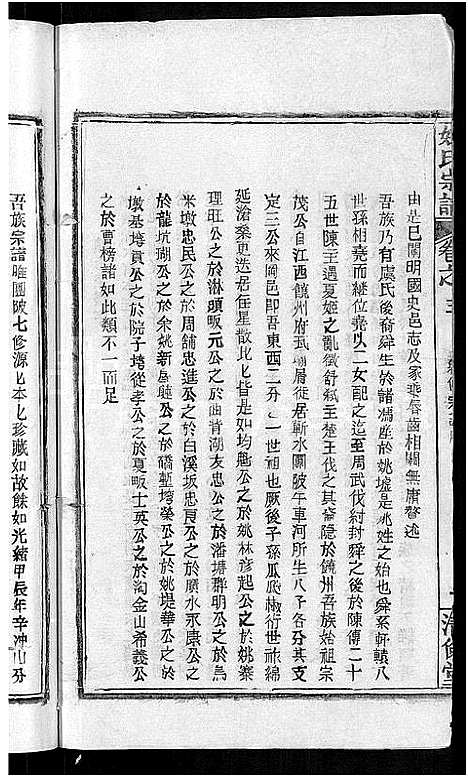 姚氏宗譜
卷之三
由是已關明國史邑志及家乘唇齒相關無庸贅述
吾族乃有虞氏後裔舜生於諸馮產於姚墟是兆姓之始也舜系軒轅八
世孫相堯而繼位堯以二女配之迄至周武伐紂封舜之後於陳傳二十
五世陳王遇夏姬之亂徵舒弒王楚王伐之其裔隱於饒州吾族始祖宗
茂公自江西饒州府瓦硼屑徙居蘄水團陂午車河所生八子各分其支
定三公來岡邑即吾東西二分之一世祖也厥後子孫瓜瓞椒衍世祿綿
延滄桑更迭居任星散比比皆是如均魁公之於姚林彥起公之於姚寨
理旺公之於淋頭畈元公之於曲背湖友忠公之於潘塘聯明公之於馬
米墩忠民公之於周舖忠進公之於白溪坂忠良公之於廣水永康公之
於龍坑瑚公之於余姚新公之於碼塹垮榮公之於姚堤華公之於
墩基垮貢公之於院子垮從孝公之於夏畈士英公之於淘金山希義公
之於曹榜諸如此類不一而足
吾族宗譜雖團陂七修源比本七珍藏如故餘如光緒甲辰年辛冲山分